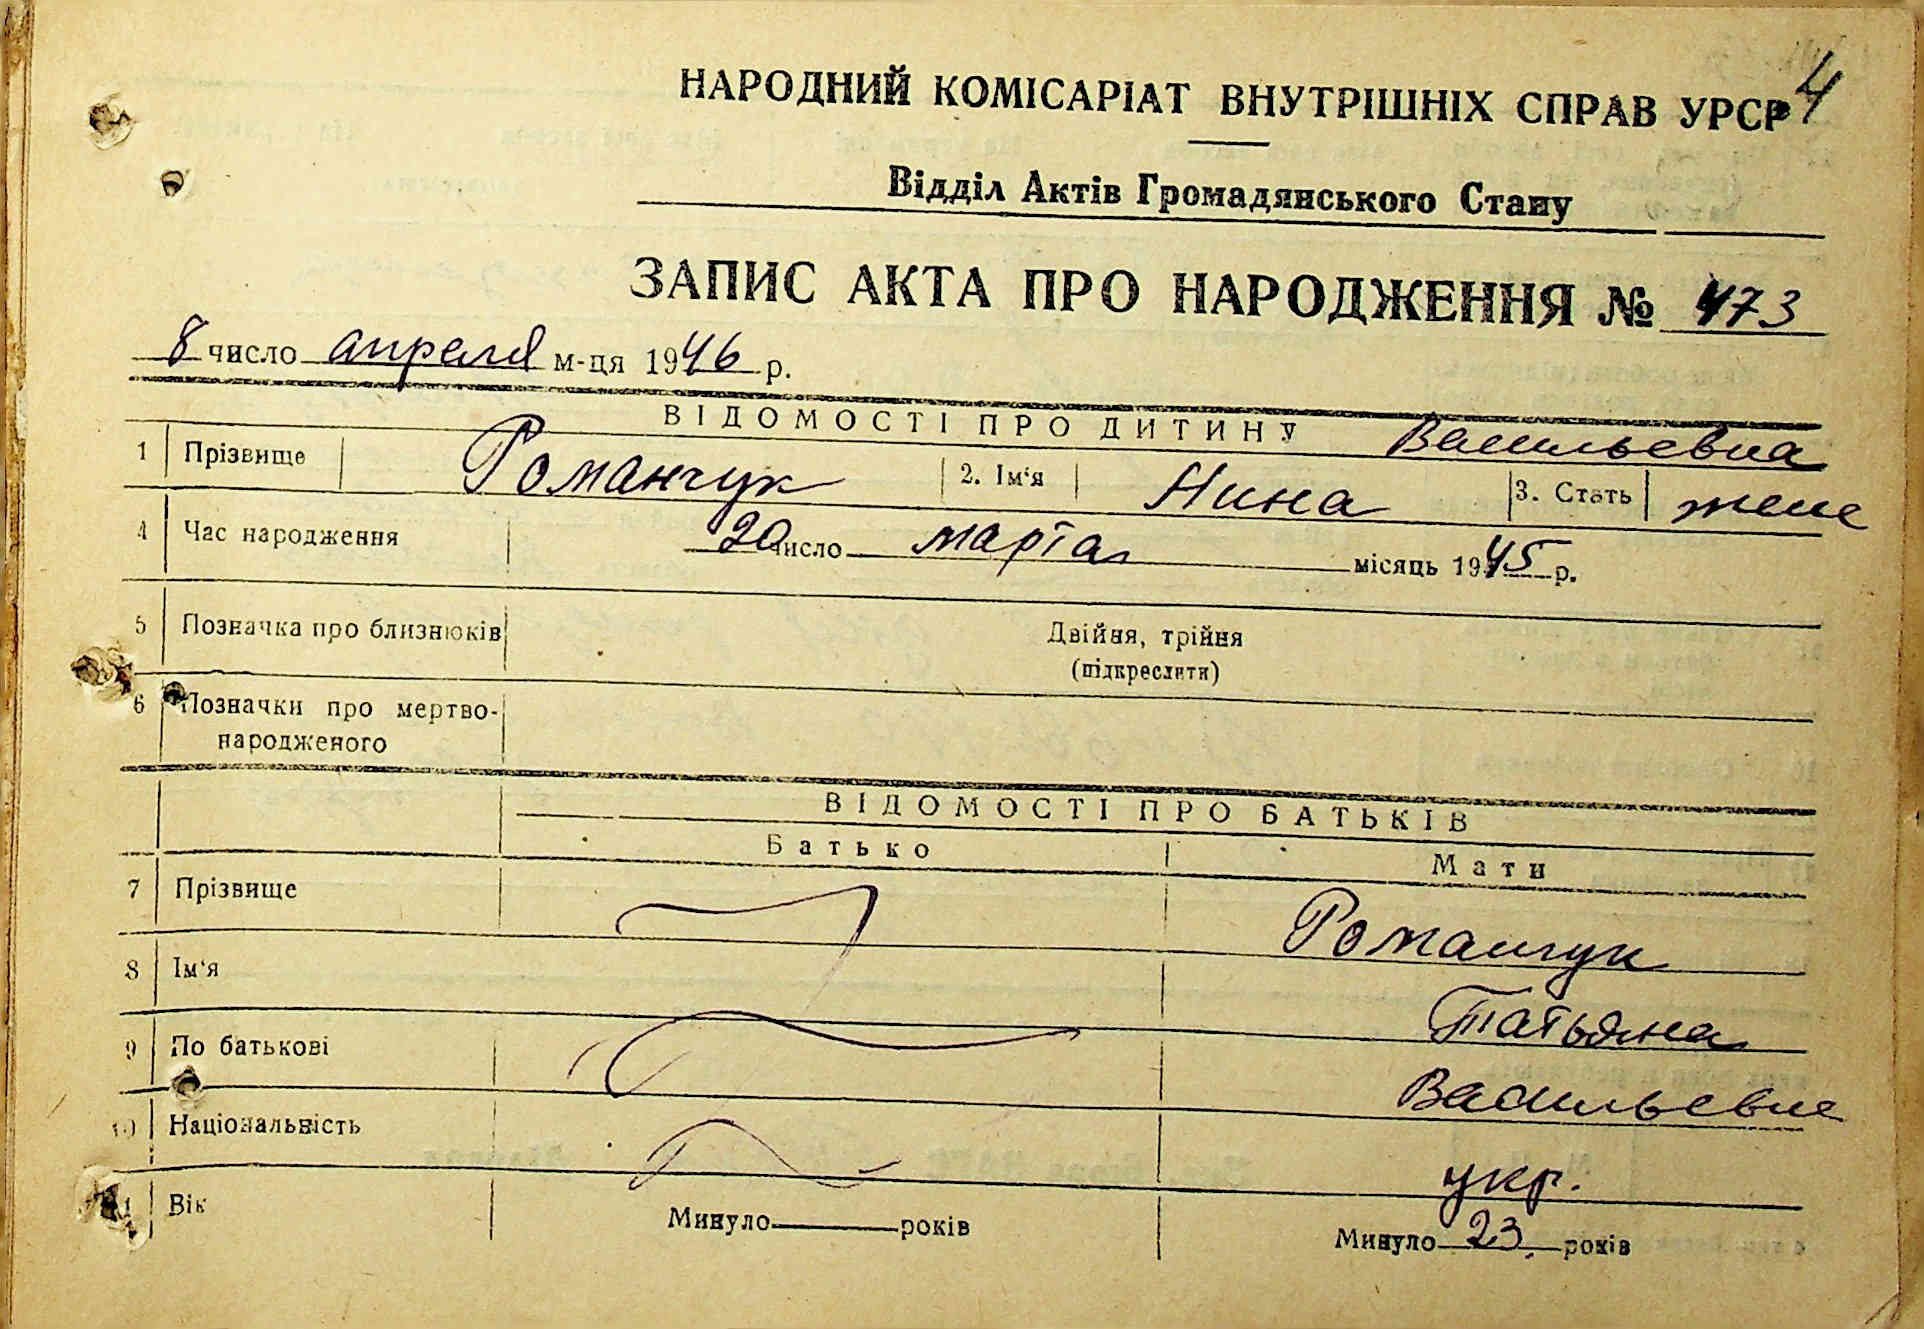 4
НАРОДНИЙ КОМІСАРІАТ ВНУТРІШНІХ СПРАВ УРСР
Відділ Актів Громадянського Стану
ЗАПИС АКТА ПРО НАРОДЖЕННЯ № 473
8 число апреля м-ця 1946 р.
ВІДОМОСТІ ПРО ДИТИНУ Васильевна
1 Прізвище Романчук 2. Ім'я Нина 3. Стать жен
4 Час народження 20 число марта місяць 1945 р.
5 Позначка про близнюків Двійня, трійня
(підкреслити)
6 Позначки про мертво-
народженого
ВІДОМОСТІ ПРО БАТЬКІВ
Батько Мати
7 Прізвище Романчук
8 Ім'я Татьяна
9 По батькові Васильевне
10 Національність укр.
11 Вік Минуло років Минуло 23 років